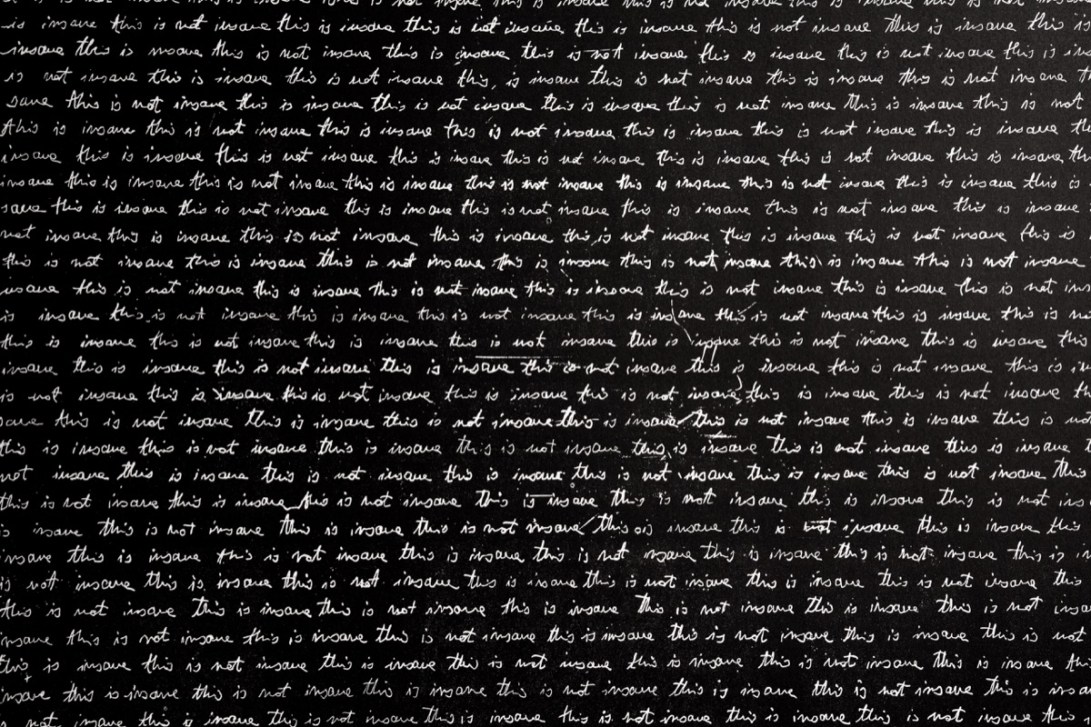 is insane this is not insane this is insane this is not insane this is insane this is not insane this is insane this
insane this is insane this is not insane this is insane this is not insane this is insane this is not insane this is
is not insane this is insane this is not insane this is insane this is not insane this is insane this is not insane
sane this is not insane this is insane this is not insane this is insane this is not insane this is insane this is not
this is insane this is not insane this is insane this is not insane this is insane this is not insane this is insane
insane this is insane this is not insane this is insane this is not insane this is insane this is not insane this is insane
insane this is insane this is not insane this is insane this is not insane this is insane this is not insane this is insane this is
sane this is insane this is not insane this is insane this is not insane this is insane this is not insane this is insane
not insane this is insane this is not insane this is insane this is not insane this is insane this is not insane this is
this is not insane this is insane this is not insane this is insane this is not insane this is insane this is not insane
insane this is not insane this is insane this is not insane this is insane this is not insane this is insane this is not
is insane this is not insane this is insane this is not insane this is insane this is not insane this is insane this is
this is insane this is not insane this is insane this is not insane this is insane this is not insane this is insane this
insane this is insane this is not insane this is insane this is not insane this is insane this is not insane this is
is not insane this is insane this is not insane this is insane this is not insane this is insane this is not insane
sane this is not insane this is insane this is not insane this is insane this is not insane this is insane this is
this is insane this is not insane this is insane this is not insane this is insane this is not insane this is insane
not insane this is insane this is not insane this is insane this is not insane this is insane this is not insane this
this is not insane this is insane this is not insane this is insane this is not insane this is insane this is not
is insane this is not insane this is insane this is not insane this is insane this is not insane this is insane this
insane this is insane this is not insane this is insane this is not insane this is insane this is not insane this is
is not insane this is insane this is not insane this is insane this is not insane this is insane this is not insane this
this is not insane this is insane this is not insane this is insane this is not insane this is insane this is not
insane this is not insane this is insane this is not insane this is insane this is not insane this is insane this is not
this is insane this is not insane this is insane this is not insane this is insane this is not insane this is insane
insane this is insane this is not insane this is insane this is not insane this is insane this is not insane this is
not insane this is insane this is not insane this is insane this is not insane this is insane this is not insane this is